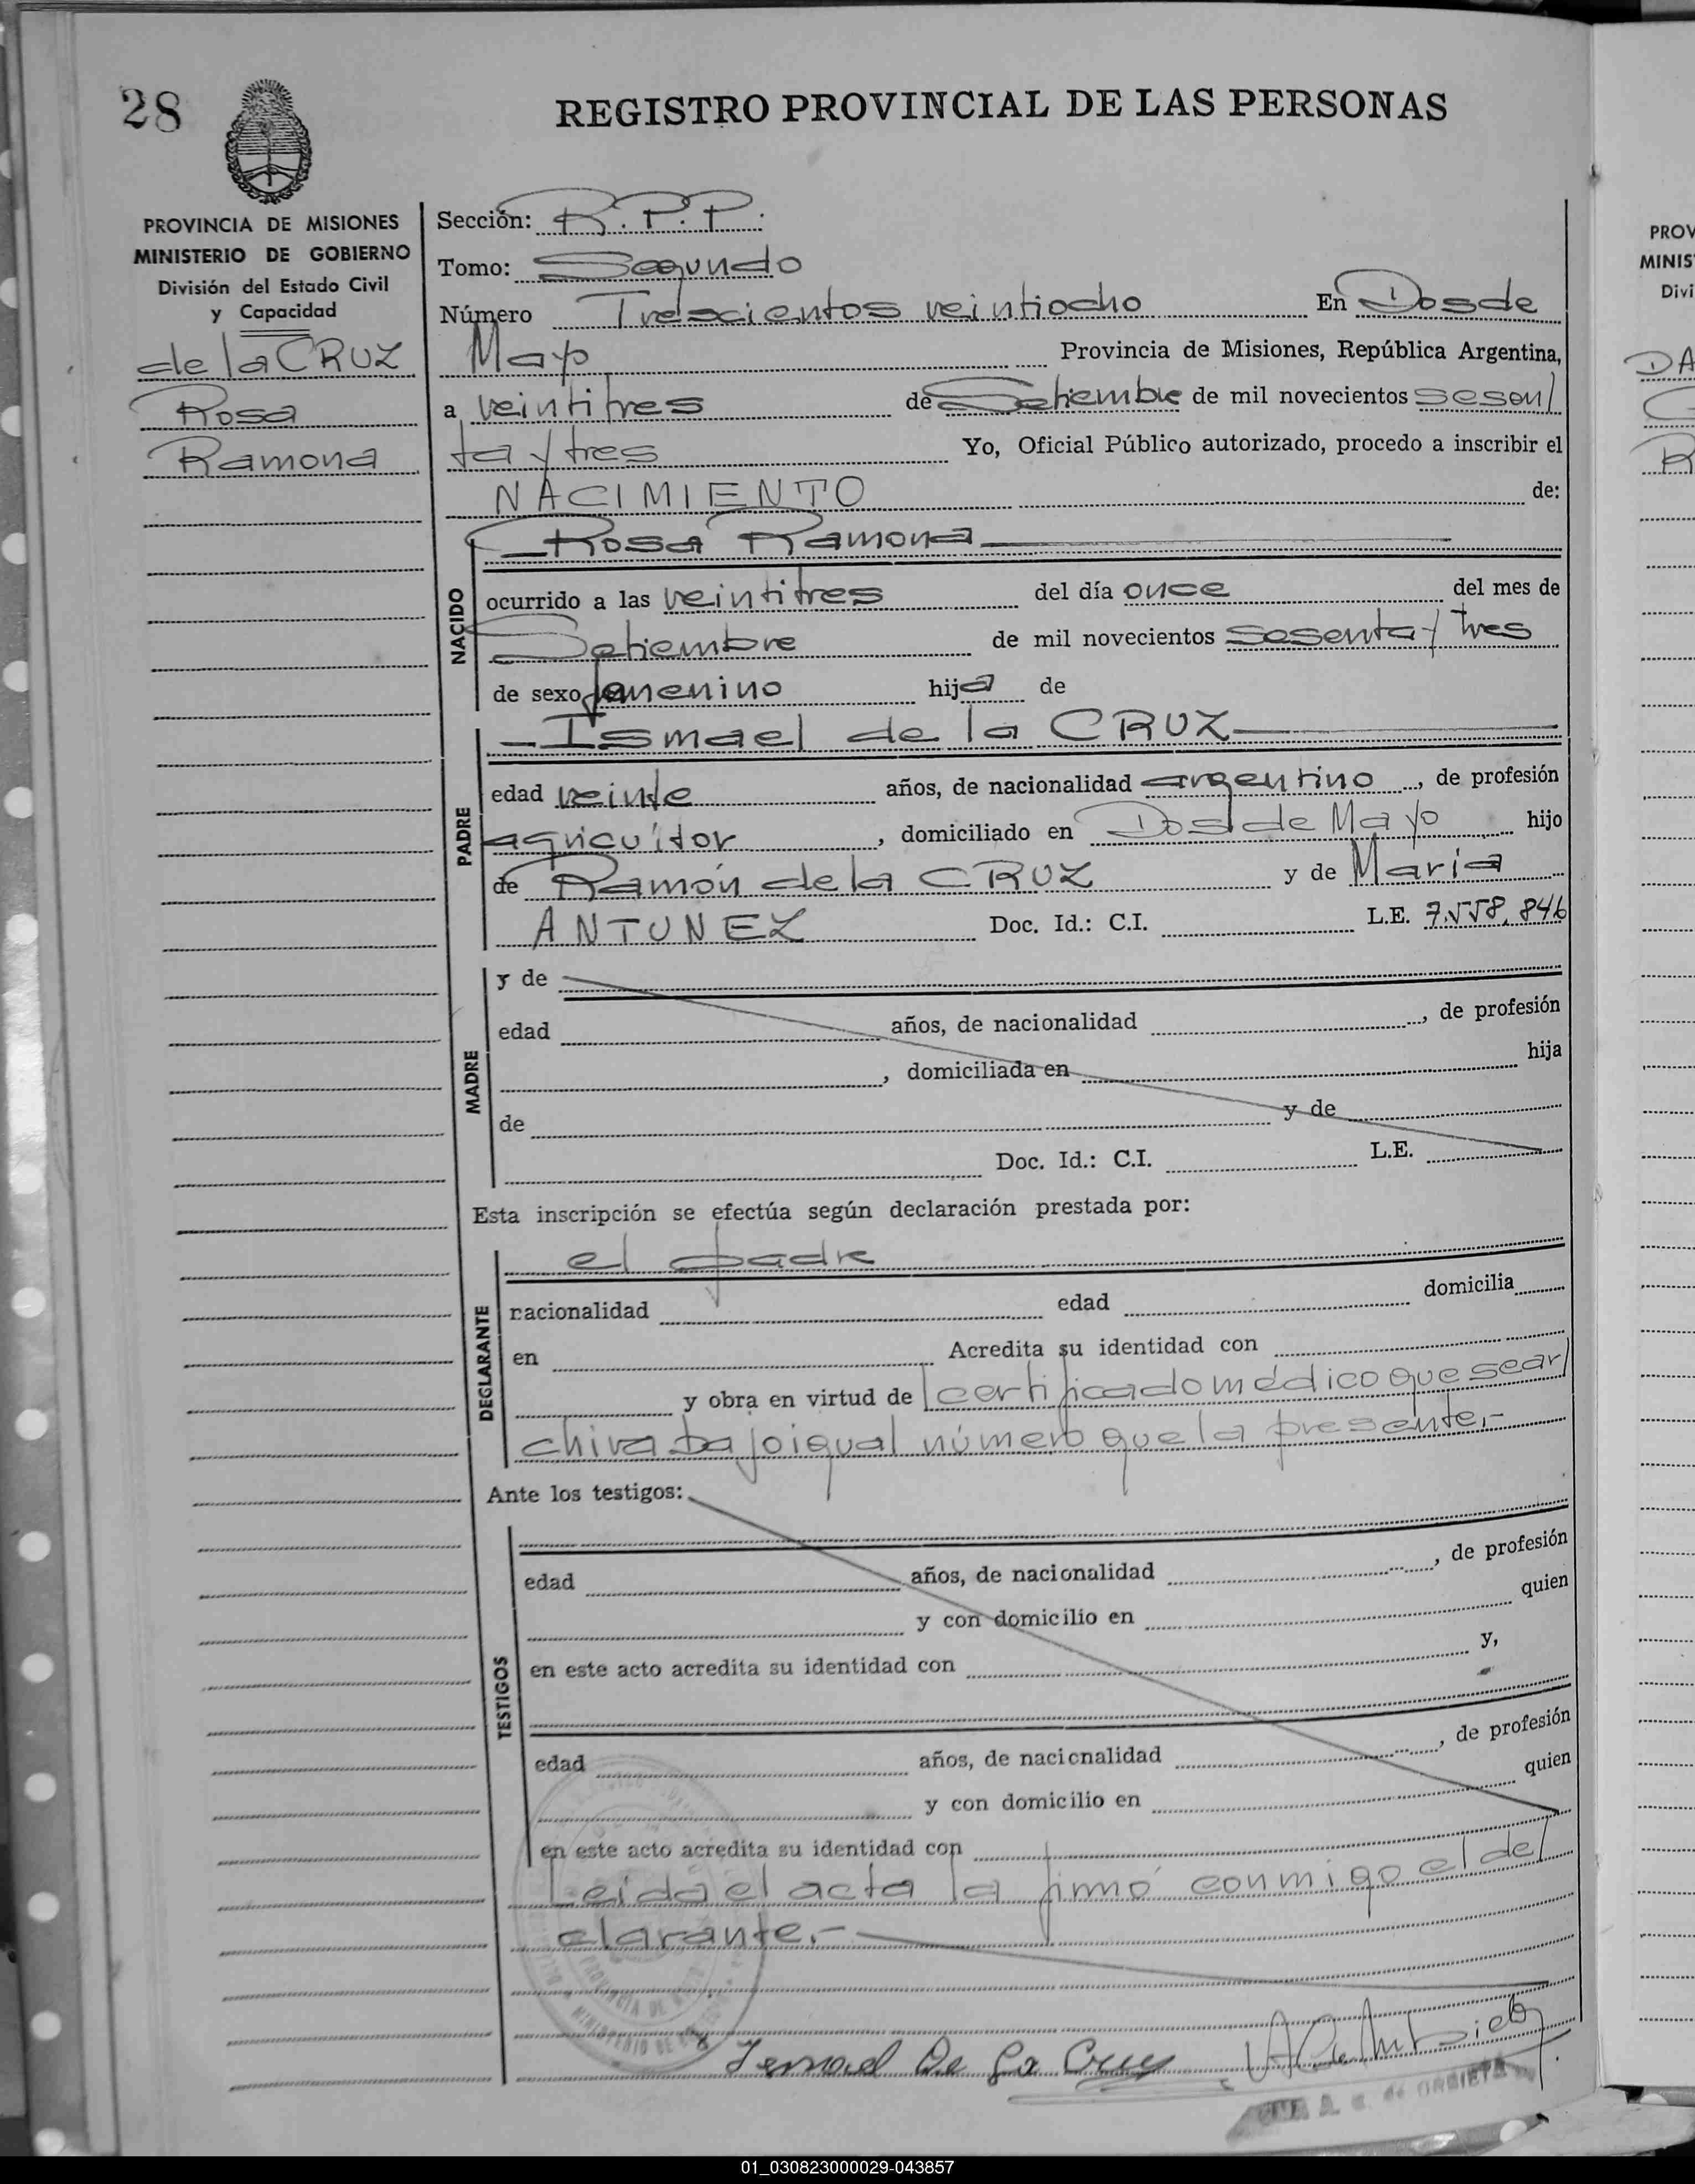 28
REGISTRO PROVINCIAL DE LAS PERSONAS
PROVINCIA DE MISIONES
MINISTERIO DE GOBIERNO
División del Estado Civil
y Capacidad
de la CRUZ
Rosa
Ramona
Sección: R.P.P.
Tomo: Segundo
Número Trescientos veintiocho En Dos de
Mayo Provincia de Misiones, República Argentina,
a veintitres de Setiembre de mil novecientos sesen/
ta y tres Yo, Oficial Público autorizado, procedo a inscribir el
NACIMIENTO de:
NACIDO
Rosa Ramona
ocurrido a las veintitres del día once del mes de
Setiembre de mil novecientos sesenta y tres
de sexo femenino hija de
PADRE
Ismael de la CRUZ
edad veinte años, de nacionalidad argentino, de profesión
agricultor, domiciliado en Dos de Mayo hijo
de Ramón de la CRUZ y de Maria
ANTUNEZ Doc. Id.: C.I. L.E. 7.558.846
MADRE
y de
edad años, de nacionalidad , de profesión
, domiciliada en hija
de y de
Doc. Id.: C.I. L.E.
Esta inscripción se efectúa según declaración prestada por:
DECLARANTE
el padre
nacionalidad edad domicilia
en Acredita su identidad con
y obra en virtud de certificado médico que se ar/
chiva bajo igual número que la presente.-
Ante los testigos:
TESTIGOS
edad años, de nacionalidad , de profesión
y con domicilio en quien
en este acto acredita su identidad con y,
edad años, de nacionalidad , de profesión
y con domicilio en quien
en este acto acredita su identidad con
Leida el acta la firmó conmigo el de/
clarante.-
Ismael De La Cruz
01_030823000029-043857
PROV
MINIS
Divi
DA